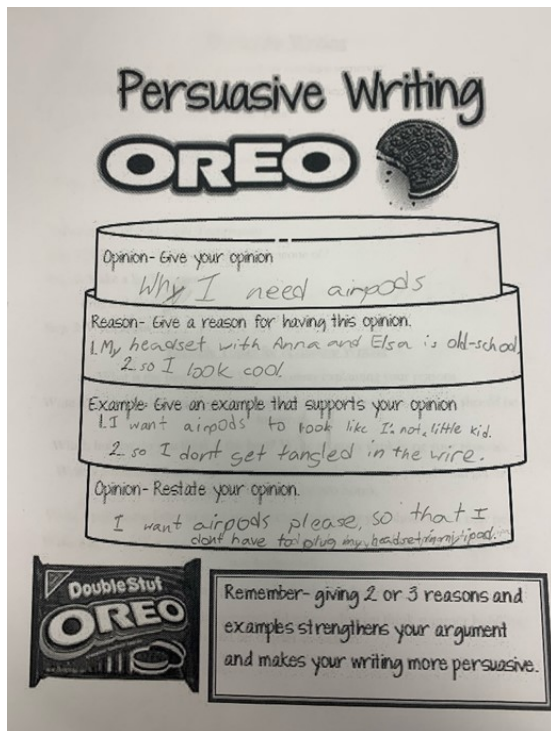 Persuasive Writing
OREO
Opinion- Give your opinion
Why I need airpods
Reason- Give a reason for having this opinion.
1. My headset with Anna and Elsa is old-school,
2. so I look cool
Example- Give an example that supports your opinion
1. I want airpods to look like I'm not little kid.
2. so I dont get tangled in the wire.
Opinion- Restate your opinion.
I want airpods please, so that I
dont have to plug my headset in my ipad.
Double Stuf
OREO
Remember- giving 2 or 3 reasons and
examples strengthens your argument
and makes your writing more persuasive.